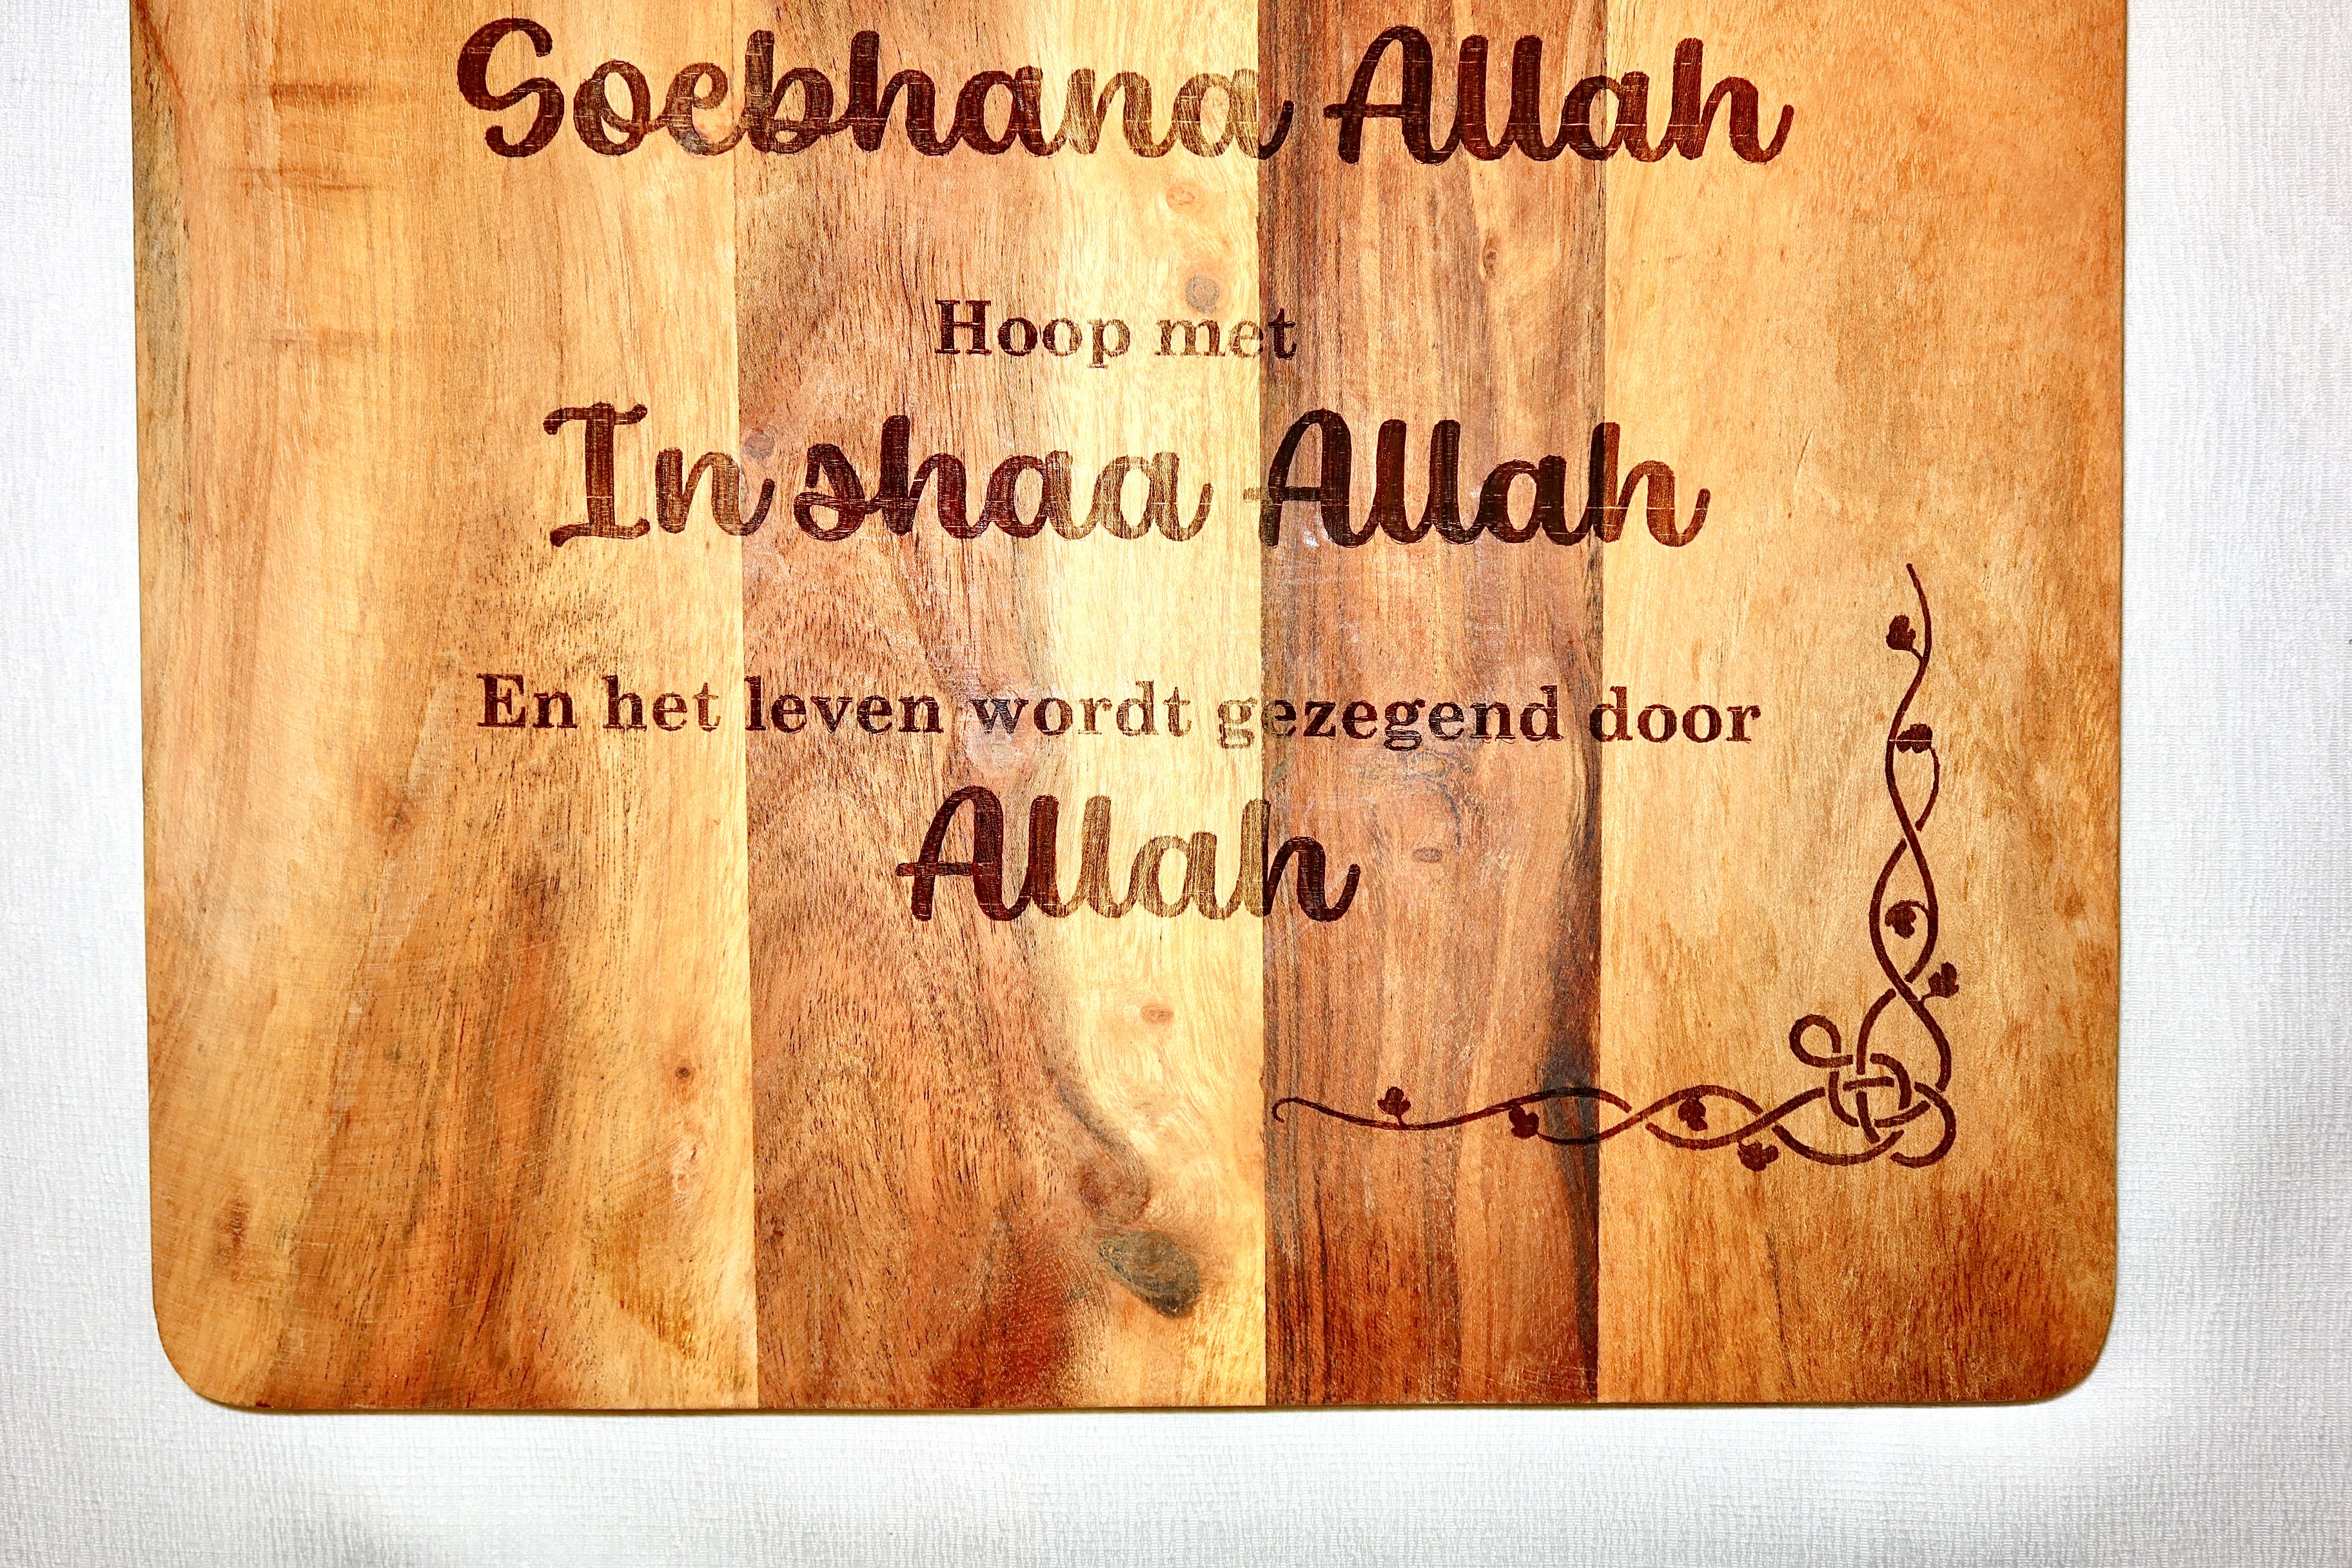 Soebhana Allah
Hoop met
In shaa Allah
En het leven wordt gezegend door
Allah